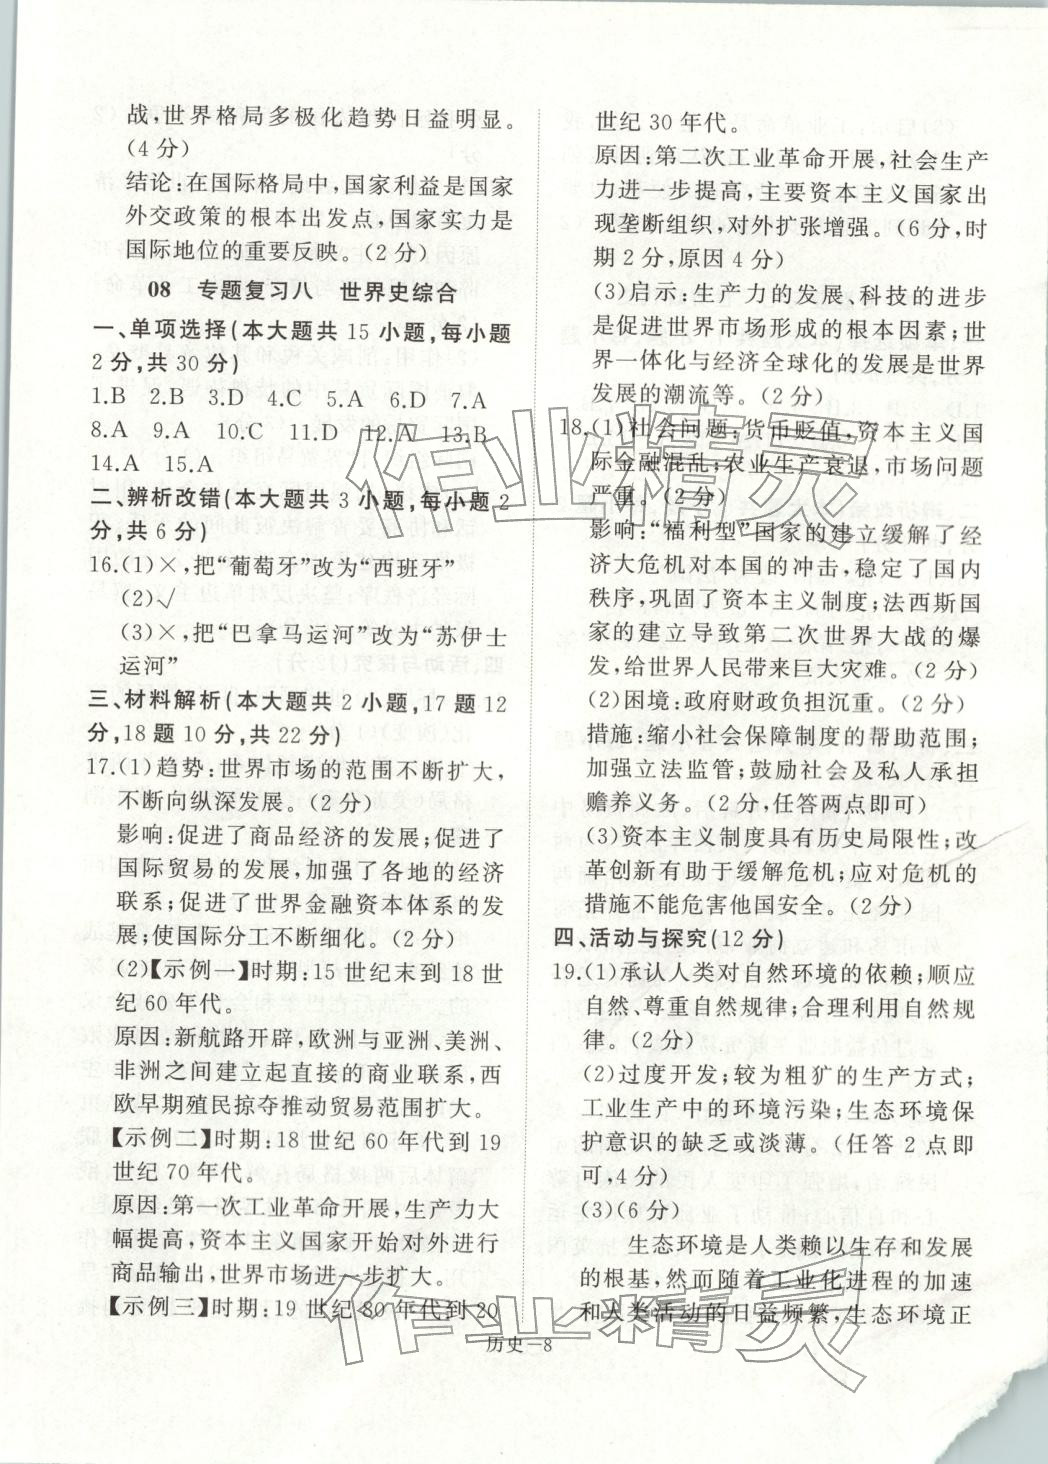 战,世界格局多极化趋势日益明显。
(4 分)
结论:在国际格局中,国家利益是国家
外交政策的根本出发点,国家实力是
国际地位的重要反映。(2 分)
08 专题复习八 世界史综合
一、单项选择(本大题共 15 小题,每小题
2 分,共 30 分)
1.B 2.B 3.D 4.C 5.A 6.D 7.A
8.A 9.A 10.C 11.D 12.A 13.B
14.A 15.A
二、辨析改错(本大题共 3 小题,每小题 2
分,共 6 分)
16.(1)×,把“葡萄牙”改为“西班牙”
(2)√
(3)×,把“巴拿马运河”改为“苏伊士
运河”
三、材料解析(本大题共 2 小题,17 题 12
分,18 题 10 分,共 22 分)
17.(1)趋势:世界市场的范围不断扩大,
不断向纵深发展。(2 分)
影响:促进了商品经济的发展;促进了
国际贸易的发展,加强了各地的经济
联系;促进了世界金融资本体系的发
展;使国际分工不断细化。(2 分)
(2)【示例一】时期:15 世纪末到 18 世
纪 60 年代。
原因:新航路开辟,欧洲与亚洲、美洲、
非洲之间建立起直接的商业联系,西
欧早期殖民掠夺推动贸易范围扩大。
【示例二】时期:18 世纪 60 年代到 19
世纪 70 年代。
原因:第一次工业革命开展,生产力大
幅提高,资本主义国家开始对外进行
商品输出,世界市场进一步扩大。
【示例三】时期:19 世纪 80 年代到 20
世纪 30 年代。
原因:第二次工业革命开展,社会生产
力进一步提高,主要资本主义国家出
现垄断组织,对外扩张增强。(6 分,时
期 2 分,原因 4 分)
(3)启示:生产力的发展,科技的进步
是促进世界市场形成的根本因素;世
界一体化与经济全球化的发展是世界
发展的潮流等。(2 分)
18.(1)社会问题:货币贬值,资本主义国
际金融混乱;农业生产衰退,市场问题
严重。(2 分)
影响:“福利型”国家的建立缓解了经
济大危机对本国的冲击,稳定了国内
秩序,巩固了资本主义制度;法西斯国
家的建立导致第二次世界大战的爆
发,给世界人民带来巨大灾难。(2 分)
(2)困境:政府财政负担沉重。(2 分)
措施:缩小社会保障制度的帮助范围;
加强立法监管;鼓励社会及私人承担
赡养义务。(2 分,任答两点即可)
(3)资本主义制度具有历史局限性;改
革创新有助于缓解危机;应对危机的
措施不能危害他国安全。(2 分)
四、活动与探究(12 分)
19.(1)承认人类对自然环境的依赖;顺应
自然、尊重自然规律;合理利用自然规
律。(2 分)
(2)过度开发;较为粗犷的生产方式;
工业生产中的环境污染;生态环境保
护意识的缺乏或淡薄。(任答 2 点即
可,4 分)
(3)(6 分)
生态环境是人类赖以生存和发展
的根基,然而随着工业化进程的加速
和人类活动的日益频繁,生态环境正
历史—8
作业精灵
作业精灵